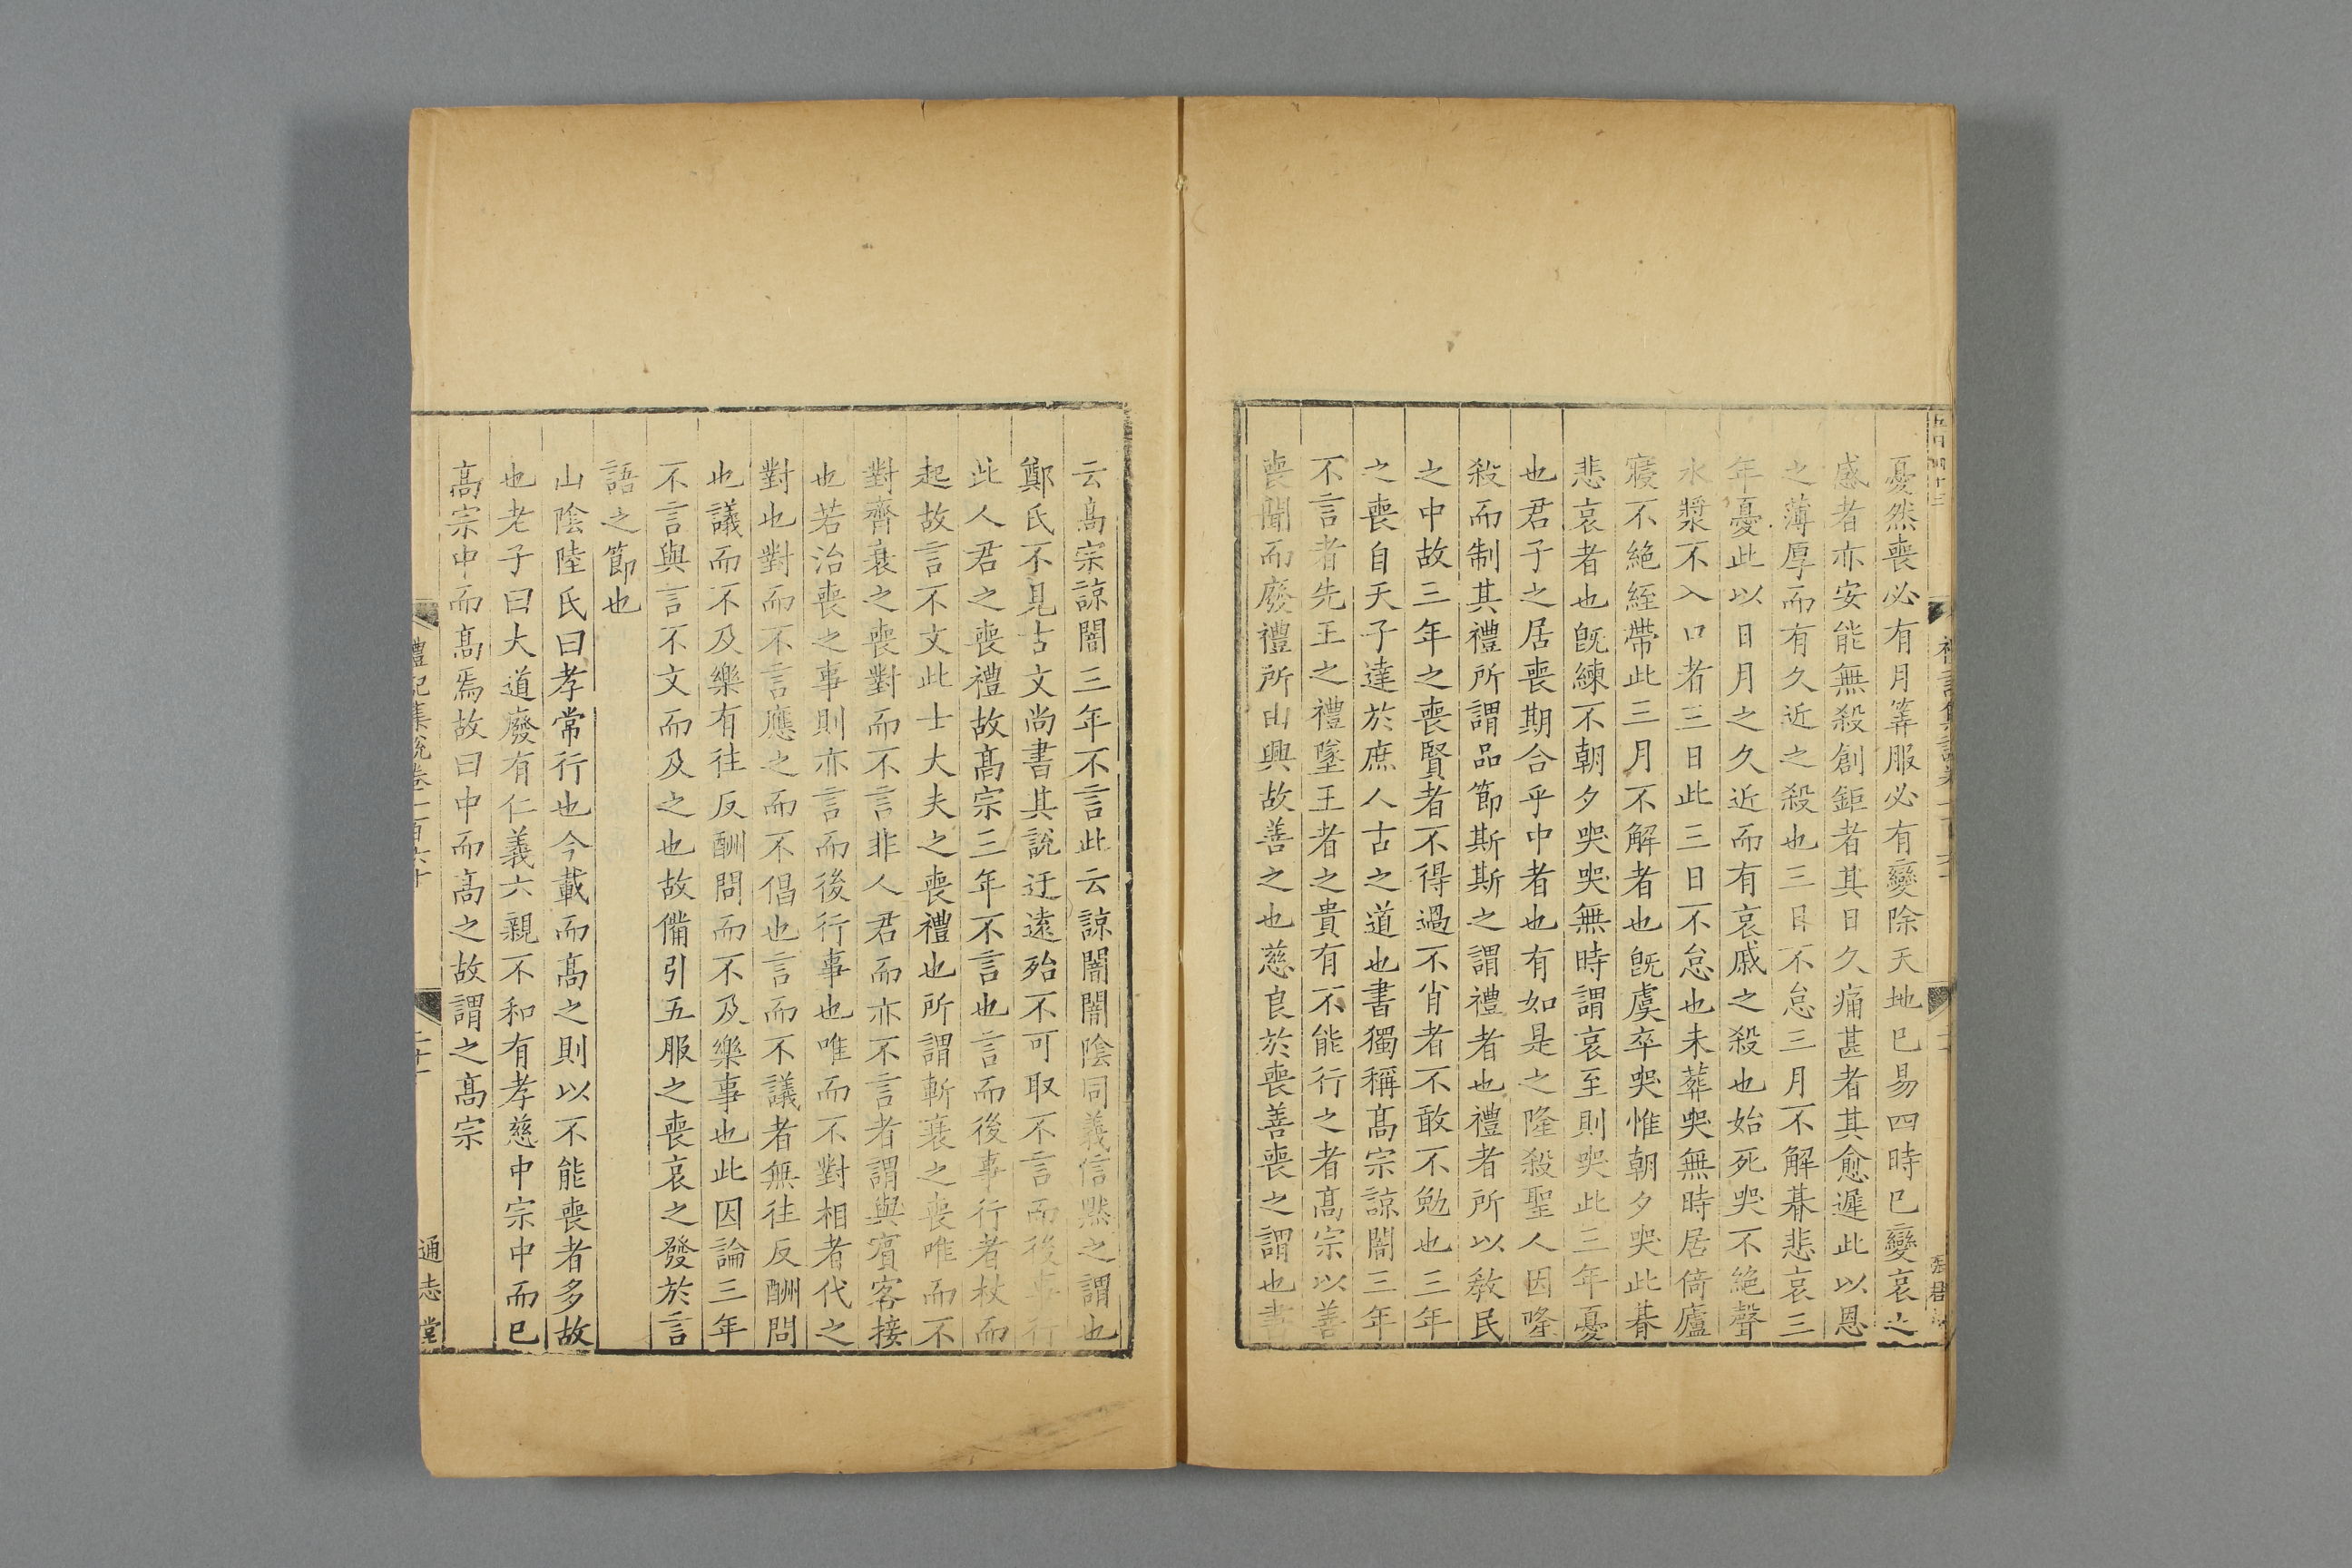 憂然喪必有月筭服必有變除天地已易四時已變哀之
感者亦安能無殺創鉅者其日久痛甚者其愈遲此以恩
之薄厚而有久近之殺也三日不怠三月不解朞悲哀三
年憂此以日月之久近而有哀戚之殺也始死哭不絕聲
水漿不入口者三日此三日不怠也未葬哭無時居倚廬
寢不絕絰帶此三月不解者也旣虞卒哭惟朝夕哭此朞
悲哀者也旣練不朝夕哭哭無時謂哀至則哭此三年憂
也君子之居喪期合乎中者也有如是之隆殺聖人因隆
殺而制其禮所謂品節斯斯之謂禮者也禮者所以敎民
之中故三年之喪賢者不得過不肖者不敢不勉也三年
之喪自天子達於庶人古之道也書獨稱髙宗諒闇三年
不言者先王之禮墜王者之貴有不能行之者髙宗以善
喪聞而廢禮所由興故善之也慈良於喪善喪之謂也書
云髙宗諒闇三年不言此云諒闇闇陰同義信黙之謂也
鄭氏不見古文尚書其說迂遠殆不可取不言而後事行
此人君之喪禮故髙宗三年不言也言而後事行者杖而
起故言不文此士大夫之喪禮也所謂斬衰之喪唯而不
對齊衰之喪對而不言非人君而亦不言者謂與賓客接
也若治喪之事則亦言而後行事也唯而不對相者代之
對也對而不言應之而不倡也言而不議者無往反酬問
也議而不及樂有往反酬問而不及樂事也此因論三年
不言與言不文而及之也故備引五服之喪哀之發於言
語之節也
山陰陸氏曰孝常行也今載而髙之則以不能喪者多故
也老子曰大道廢有仁義六親不和有孝慈中宗中而已
髙宗中而髙焉故曰中而髙之故謂之髙宗
禮記集說卷一百六十
通志堂